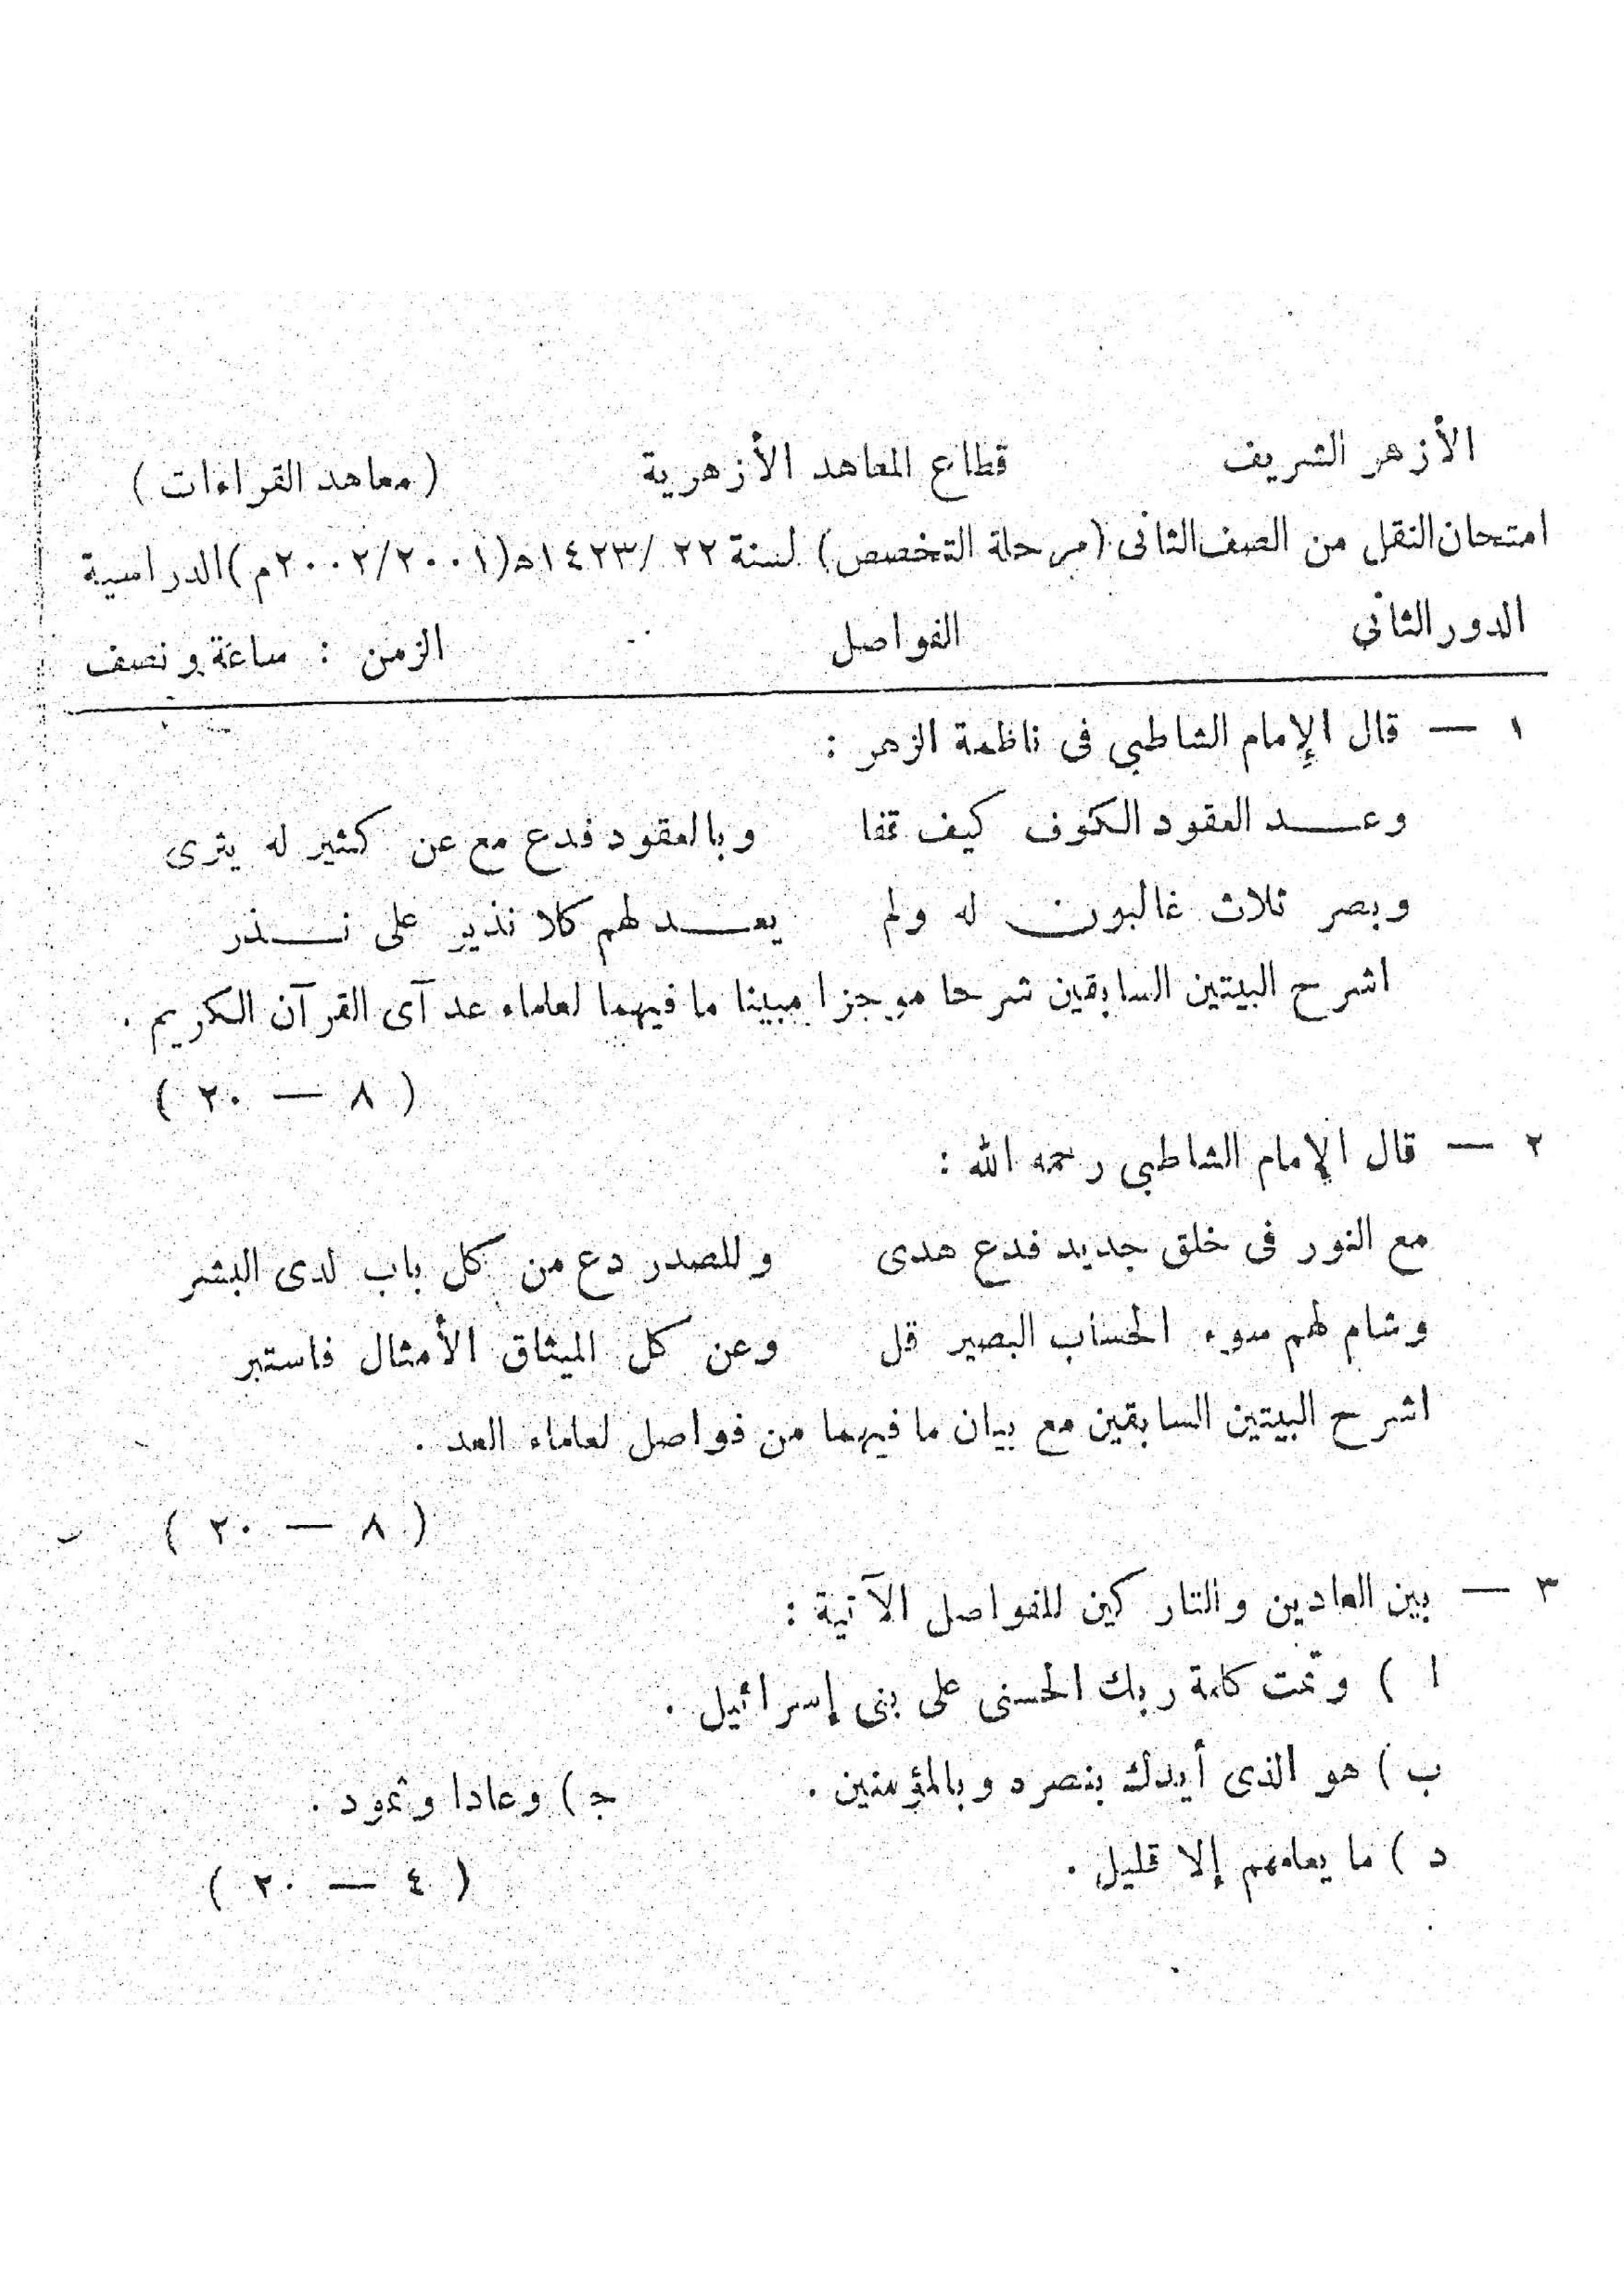 الأزهر الشريف قطاع المعاهد الأزهرية (معاهد القراءات)
امتحان النقل من الصف الثانى (مرحلة التخصص) لسنة ٢٢ /١٤٢٣هـ(٢٠٠٢/٢٠٠١م) الدراسية
الدور الثانى الفواصل الزمن : ساعة ونصف
١ — قال الإمام الشاطبى فى ناظمة الزهر :
وعد العقود الكوف كيف قفا وبالعقود فدع مع عن كثير له يثرى
وبصر ثلاث غالبون له ولم يعد لهم كلا نذير على نذر
اشرح البيتين السابقين شرحا موجزا مبينا ما فيهما لعلماء عد آى القرآن الكريم .
( ٨ — ٢٠ )
٢ — قال الإمام الشاطبى رحمه الله :
مع النور فى خلق جديد فدع هدى وللصدر دع من كل باب لدى البشر
وشام لهم سوء الحساب البصير قل وعن كل الميثاق الأمثال فاستبر
اشرح البيتين السابقين مع بيان ما فيهما من فواصل لعلماء العد .
( ٨ — ٢٠ )
٣ — بين العادين والتاركين للفواصل الآتية :
ا ) وتمّت كلمة ربك الحسنى على بنى إسرائيل .
ب ) هو الذى أيدك بنصره وبالمؤمنين . جـ ) وعادا وثمود .
د ) ما يعلمهم إلا قليل .
( ٤ — ٢٠ )